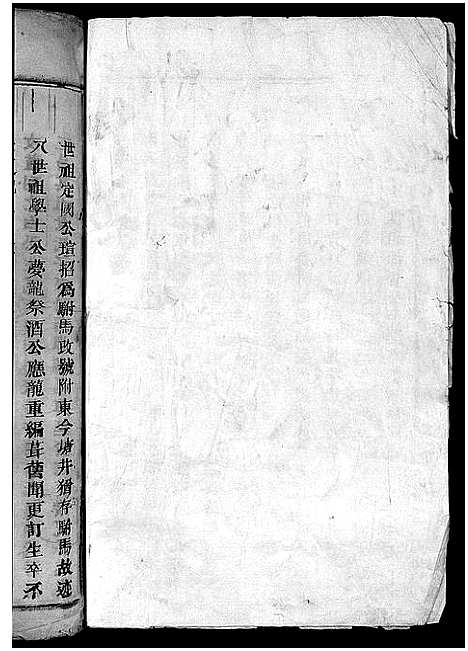 世祖定國公瑄招為駙馬政號附東今塘井猶存駙馬故迹
八世祖學士公夢龍祭酒公應龍重編葺舊聞更訂生卒不